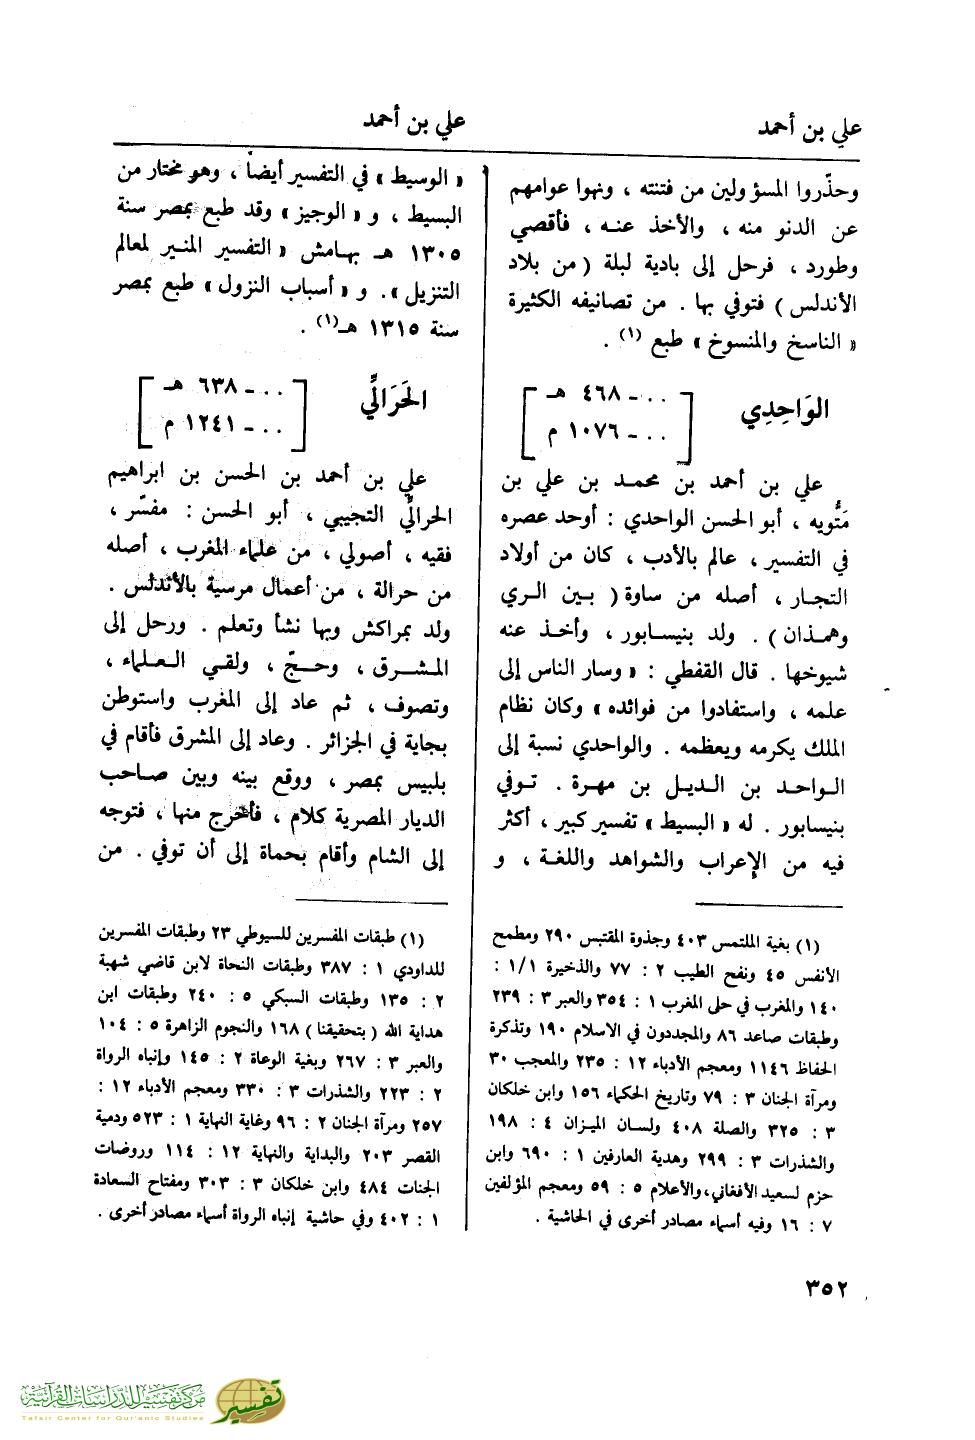 علي بن أحمد
علي بن أحمد
وحذّروا المسؤولين من فتنته ، ونهوا عوامهم
عن الدنو منه ، والأخذ عنه ، فأقصي
وطورد ، فرحل إلى بادية لبلة ( من بلاد
الأندلس ) فتوفي بها . من تصانيفه الكثيرة
« الناسخ والمنسوخ » طبع (١) .
الوَاحِدِي
... ـ ٤٦٨ هـ
... ـ ١٠٧٦ م
علي بن أحمد بن محمد بن علي بن
مَتُّويه ، أبو الحسن الواحدي : أوحد عصره
في التفسير ، عالم بالأدب ، كان من أولاد
التجار ، أصله من ساوة ( بين الري
وهمذان ) . ولد بنيسابور ، وأخذ عنه
شيوخها . قال القفطي : « وسار الناس إلى
علمه ، واستفادوا من فوائده » وكان نظام
الملك يكرمه ويعظمه . والواحدي نسبة إلى
الواحد بن الديل بن مهرة . توفي
بنيسابور . له « البسيط » تفسير كبير ، أكثر
فيه من الإعراب والشواهد واللغة ، و
(١) بغية الملتمس ٤٠٣ وجذوة المقتبس ٢٩٠ ومطمح
الأنفس ٤٥ ونفح الطيب ٢ : ٧٧ والذخيرة ١/١ :
١٤٠ والمغرب في حلى المغرب ١ : ٣٥٤ والعبر ٣ : ٢٣٩
وطبقات صاعد ٨٦ والمجددون في الاسلام ١٩٠ وتذكرة
الحفاظ ١١٤٦ ومعجم الأدباء ١٢ : ٢٣٥ والمعجب ٣٠
ومرآة الجنان ٣ : ٧٩ وتاريخ الحكماء ١٥٦ وابن خلكان
٣ : ٣٢٥ والصلة ٤٠٨ ولسان الميزان ٤ : ١٩٨
والشذرات ٣ : ٢٩٩ وهدية العارفين ١ : ٦٩٠ وابن
حزم لسعيد الأفغاني ، والأعلام ٥ : ٥٩ ومعجم المؤلفين
٧ : ١٦ وفيه أسماء مصادر أخرى في الحاشية .
« الوسيط » في التفسير أيضاً ، وهو مختار من
البسيط ، و « الوجيز » وقد طبع بمصر سنة
١٣٠٥ هـ بهامش « التفسير المنير لمعالم
التنزيل » . و « أسباب النزول » طبع بمصر
سنة ١٣١٥ هـ (١) .
الحَرَالِّي
... ـ ٦٣٨ هـ
... ـ ١٢٤١ م
علي بن أحمد بن الحسن بن ابراهيم
الحرالّي التجيبي ، أبو الحسن : مفسّر ،
فقيه ، أصولي ، من علماء المغرب ، أصله
من حرالة ، من أعمال مرسية بالأندلس .
ولد بمراكش وبها نشأ وتعلم . ورحل إلى
المشرق ، وحجّ ، ولقي العلماء ،
وتصوف ، ثم عاد إلى المغرب واستوطن
بجاية في الجزائر . وعاد إلى المشرق فأقام في
بلبيس بمصر ، ووقع بينه وبين صاحب
الديار المصرية كلام ، فأخرج منها ، فتوجه
إلى الشام وأقام بحماة إلى أن توفي . من
(١) طبقات المفسرين للسيوطي ٢٣ وطبقات المفسرين
للداودي ١ : ٣٨٧ وطبقات النحاة لابن قاضي شهبة
٢ : ١٣٥ وطبقات السبكي ٥ : ٢٤٠ وطبقات ابن
هداية الله ( بتحقيقنا ) ١٦٨ والنجوم الزاهرة ٥ : ١٠٤
والعبر ٣ : ٢٦٧ وبغية الوعاة ٢ : ١٤٥ وإنباه الرواة
٢ : ٢٢٣ والشذرات ٣ : ٣٣٠ ومعجم الأدباء ١٢ :
٢٥٧ ومرآة الجنان ٢ : ٩٦ وغاية النهاية ١ : ٥٢٣ ودمية
القصر ٢٠٣ والبداية والنهاية ١٢ : ١١٤ وروضات
الجنات ٤٨٤ وابن خلكان ٣ : ٣٠٣ ومفتاح السعادة
١ : ٤٠٢ وفي حاشية إنباه الرواة أسماء مصادر أخرى .
٣٥٢
مركز تفسير للدراسات القرآنية
Tafsir Center for Qur'anic Studies
تفسير